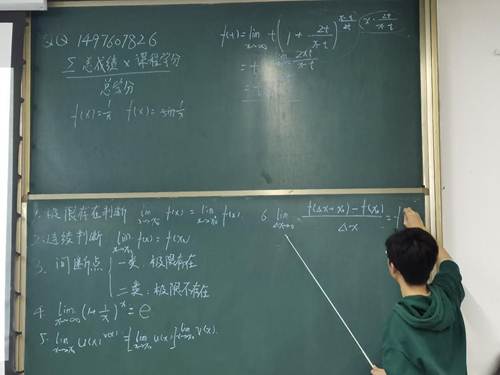 QQ 1497607826
Σ 总成绩 × 课程学分
总学分
f(x)=1/x f(x)=sin 1/x
f(t)=lim x→∞ t(1+2t/(x-t))^((x-t)/2t · x · 2t/(x-t))
1. 极限存在判断 lim x→x₀⁻ f(x) = lim x→x₀⁺ f(x)
2. 连续判断 lim x→x₀ f(x)=f(x₀)
3. 间断点 { 一类:极限存在
二类:极限不存在
4. lim x→∞ (1+1/x)^x = e
5. lim x→x₀ u(x)^v(x) = [lim x→x₀ u(x)]^lim x→x₀ v(x)
6 lim Δx→0 (f(Δx+x₀)-f(x₀))/Δx =